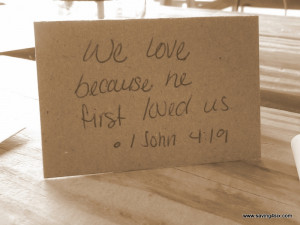 We love
because he
first loved us
• 1 John 4:19
www.savingdinar.com